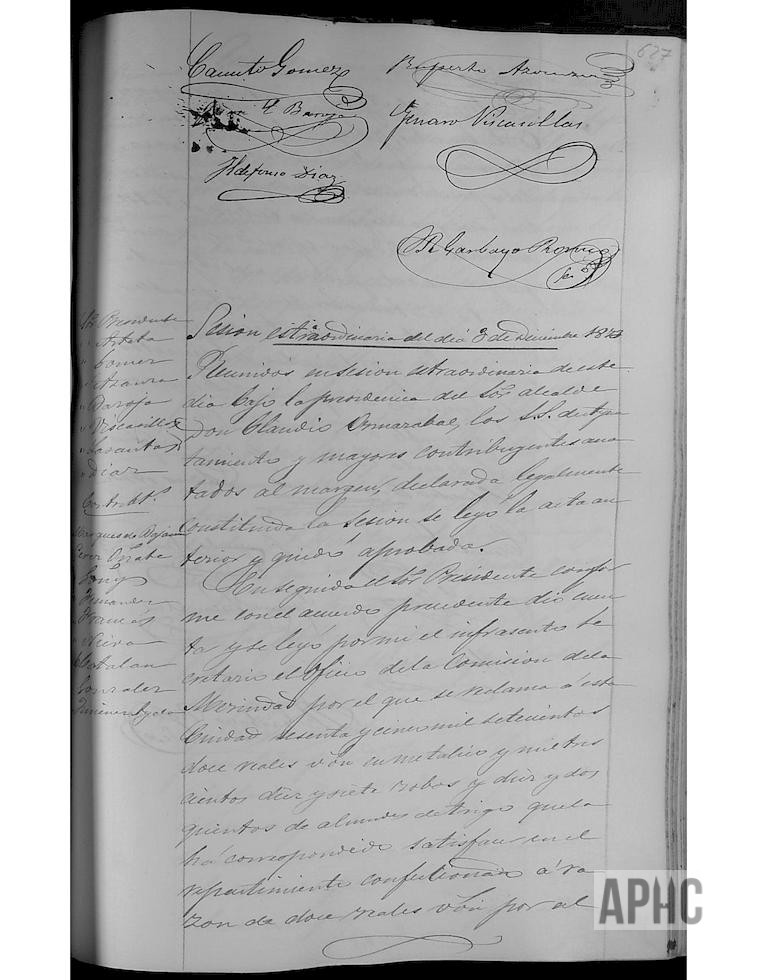 627
Canuto Gomez
Ruperto
Baroja
Genaro Viscasillas
Ildefonso Diaz
R Garbayo
Sr Presidente
" Arteta
" Gomez
" Azanza
" Baroja
" Viscasillas
" Lasantas
" Diaz
Contribts.
Marques de
Perez Oñate
Fernandez
Frances
Neira
Catalan
Gonzalez
Jimenez
Sesion estraordinaria del dia 3 de Diciembre 1873
Reunidos en sesion estraordinaria de este
dia bajo la presidencia del Sor. alcalde
Don Claudio Ormazabal, los S.S. de Ayun
tamiento y mayores contribuyentes ano
tados al margen, declarada legalmente
constituida la sesion se leyó la acta an
terior y quedó aprobada.
En seguida el Sor. Presidente confor
me con el acuerdo precedente dio cuen
ta y se leyó por mi el infrascrito Se
cretario el oficio de la Comision de la
Merindad por el que se reclama á esta
Ciudad sesenta y cinco mil setecientos
doce reales von en metalico y mil tres
cientos diez y siete robos y diez y dos
quintos de almudes de trigo que la
há correspondido satisfacer en el
repartimiento confeccionado á ra
zon de doce reales von por al
APHC